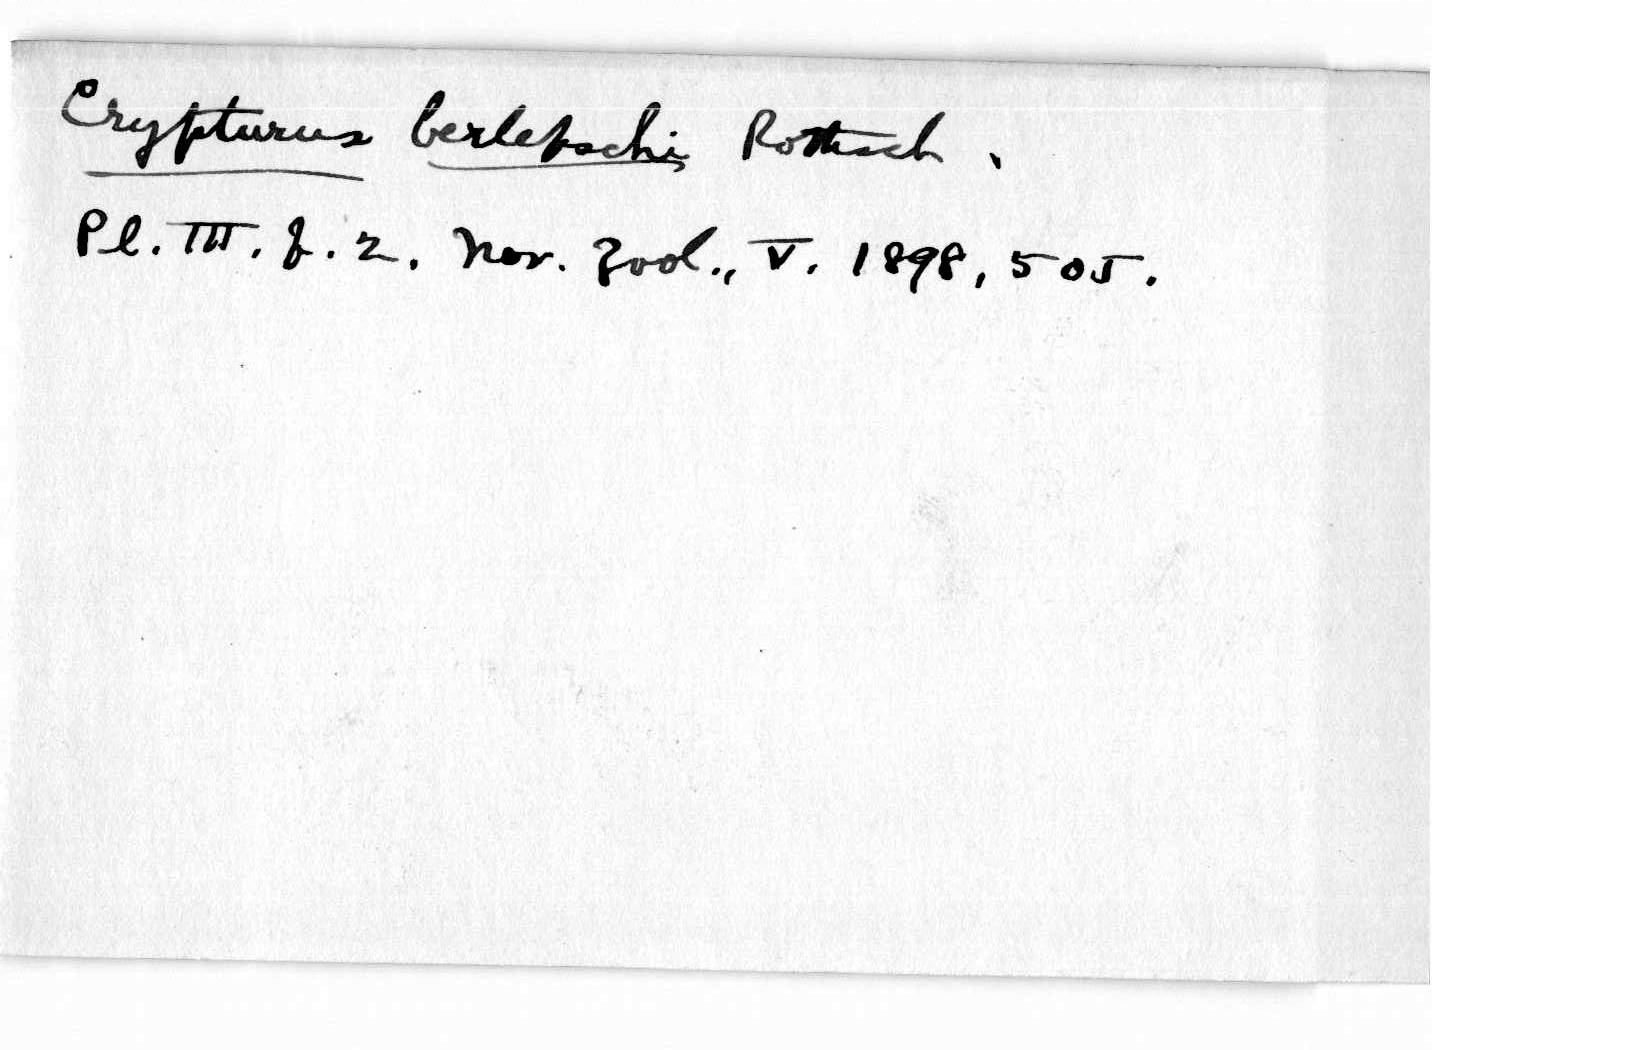 Crypturus berlepschi Rothsch.
Pl. III. f. 2. Nov. Zool., V. 1898, 505.